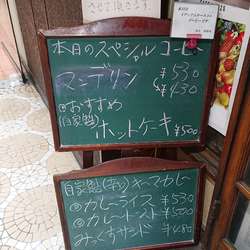 本日のスペシャルコーヒー
マンデリン ¥530
¥430
おすすめ
(自家製)
ホットケーキ ¥500
自家製(辛い)キーマカレー
カレーライス ¥530
カレートースト ¥500
みっくすサンド ¥480